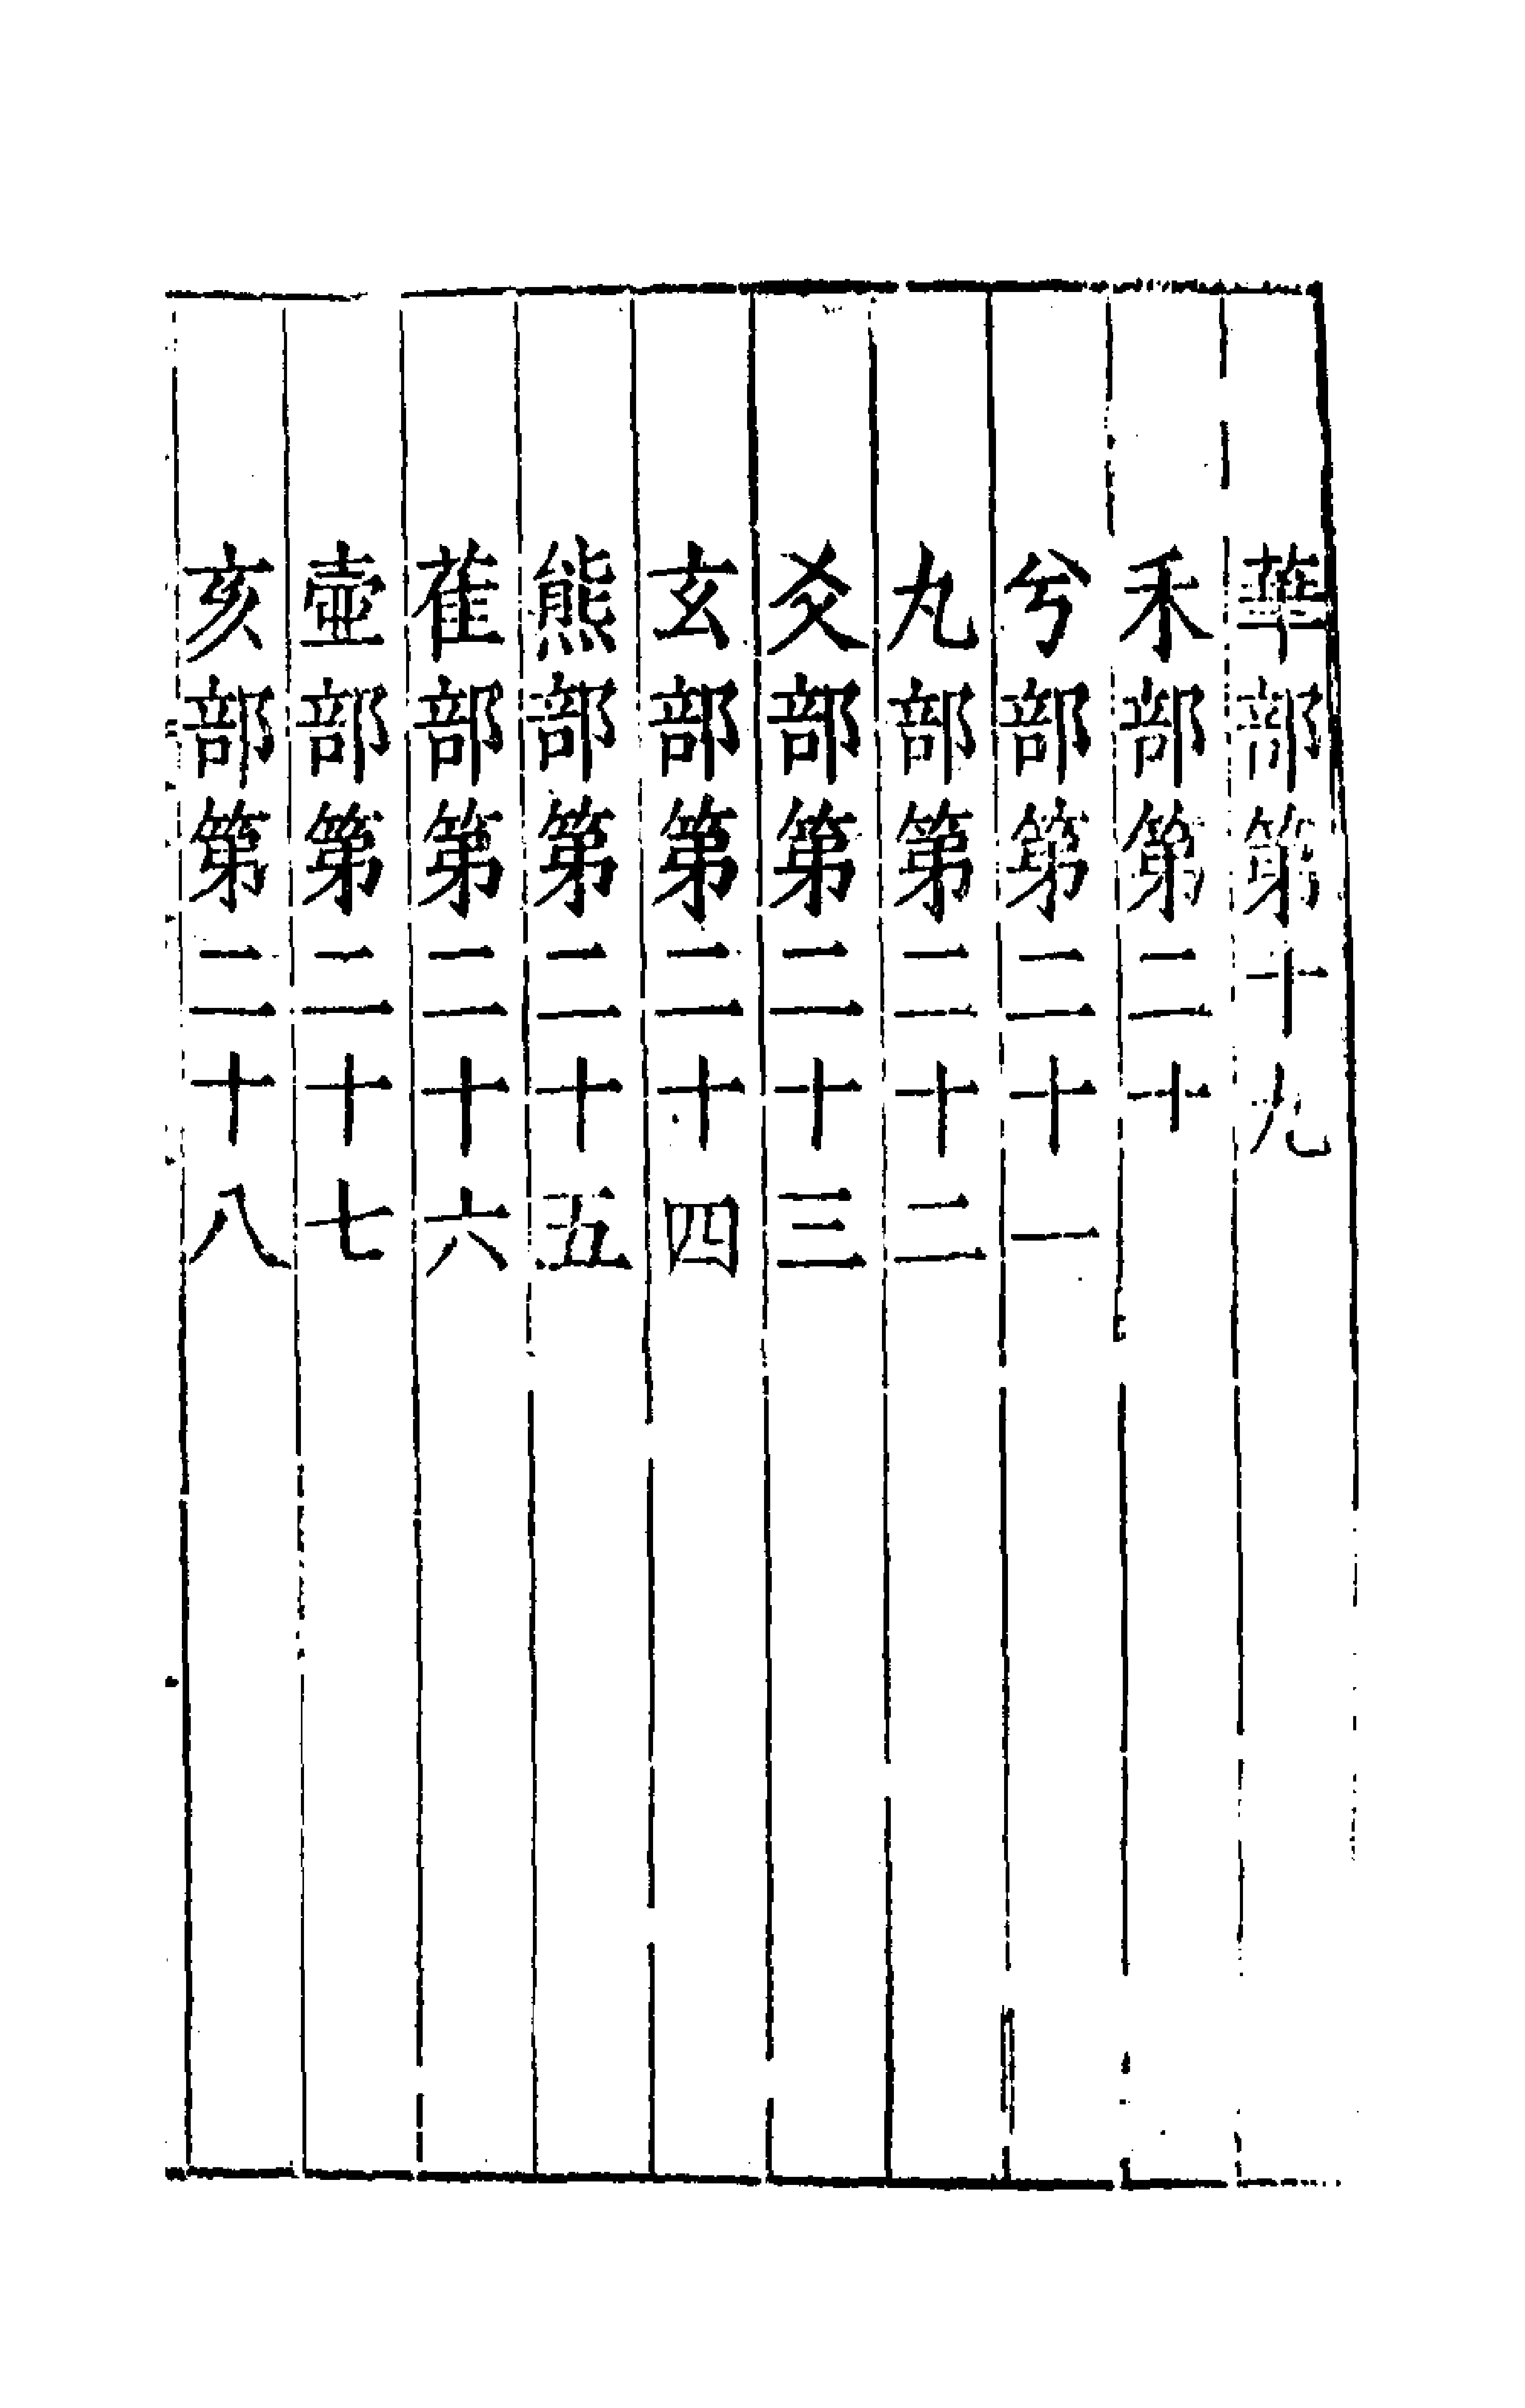 華部第十九
禾部第二十
兮部第二十一
丸部第二十二
爻部第二十三
玄部第二十四
熊部第二十五
萑部第二十六
壺部第二十七
亥部第二十八